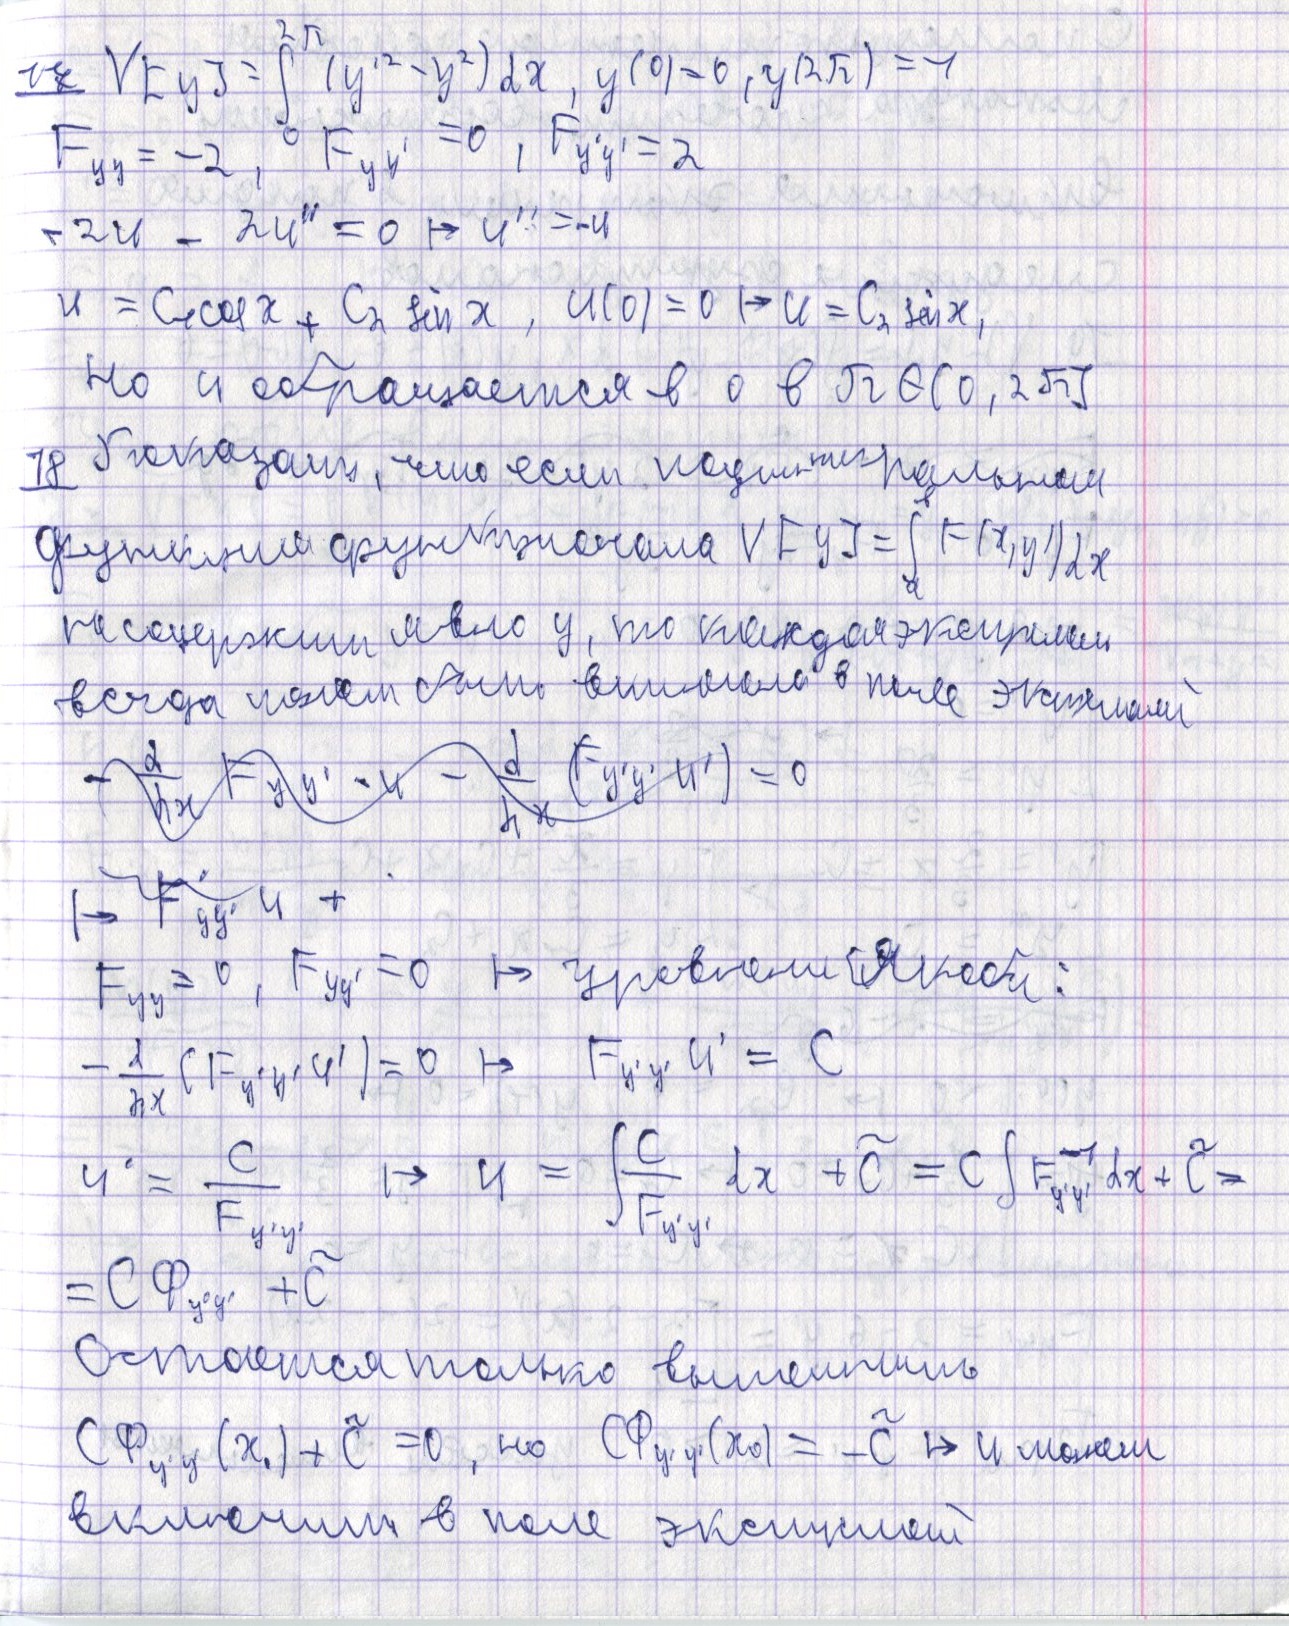 17 V[y] = ∫₀^{2π} (y'² - y²) dx, y(0) = 0, y(2π) = 1
F_{yy} = -2, F_{yy'} = 0, F_{y'y'} = 2
-2u - 2u'' = 0 ↦ u'' = -u
u = C₁cos x + C₂ sin x, u(0) = 0 ↦ u = C₂ sin x,
Но u обращается в 0 в π ∈ (0, 2π]
18 Показать, что если подынтегральная
функция функционала V[y] = ∫ₐᵇ F(x, y') dx
не содержит явно y, то каждая экстремаль
всегда может быть включена в поле экстремалей
- d/dx F_{yy'} · u - d/dx (F_{y'y'} u') = 0
↦ F_{yy'} u +
F_{yy} = 0, F_{yy'} = 0 ↦ уравнение Якоби:
- d/dx (F_{y'y'} u') = 0 ↦ F_{y'y'} u' = C
u' = C / F_{y'y'} ↦ u = ∫ C / F_{y'y'} dx + C̃ = C ∫ F_{y'y'}^{-1} dx + C̃ =
= C Φ_{y'y'} + C̃
Остается только
CΦ_{y'y'}(x₀) + C̃ = 0, но CΦ_{y'y'}(x₀) = -C̃ ↦ u можем
включить в поле экстремалей